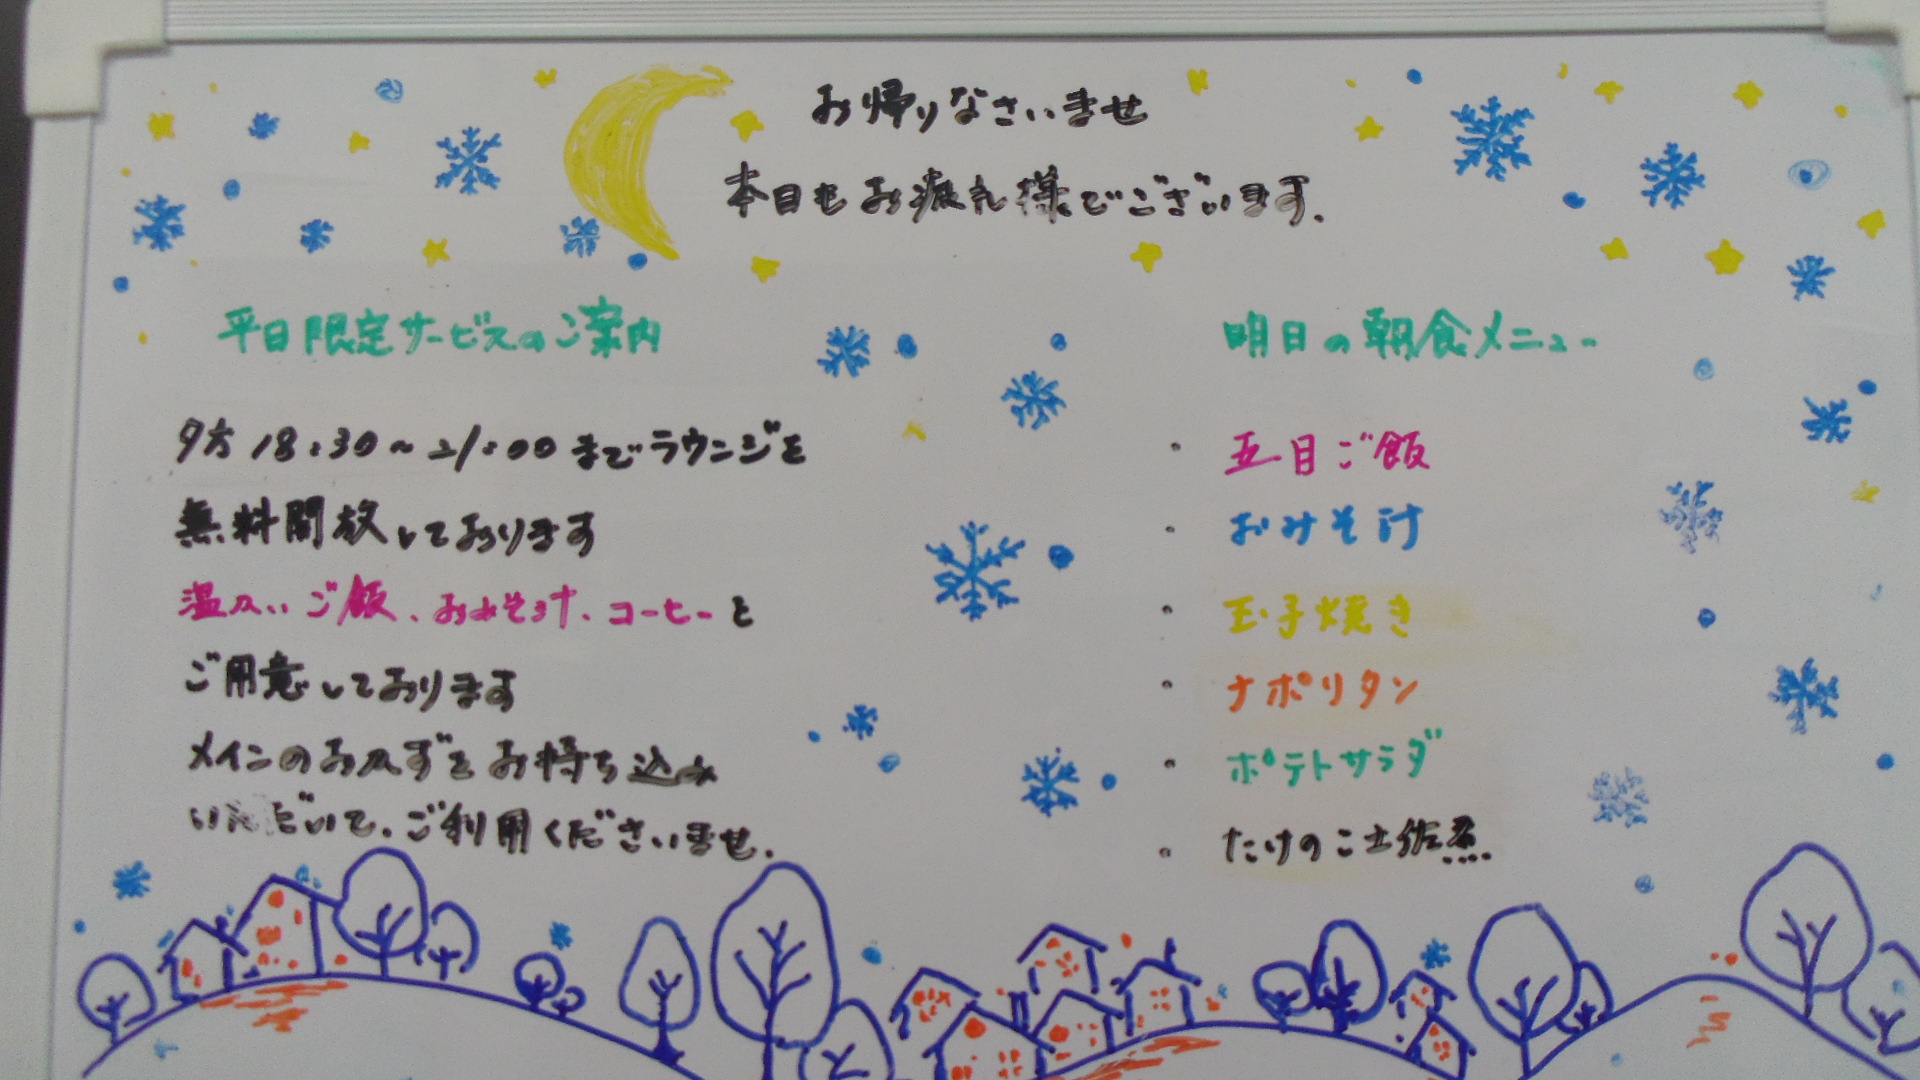 お帰りなさいませ
本日もお疲れ様でございます.
平日限定サービスのご案内
夕方 18:30〜21:00までラウンジを
無料開放しております
温かいご飯、おみそ汁、コーヒーと
ご用意しております
メインのおかずをお持ち込み
いただいて、ご利用くださいませ.
明日の朝食メニュー
・五目ご飯
・おみそ汁
・玉子焼き
・ナポリタン
・ポテトサラダ
・たけのこ土佐煮